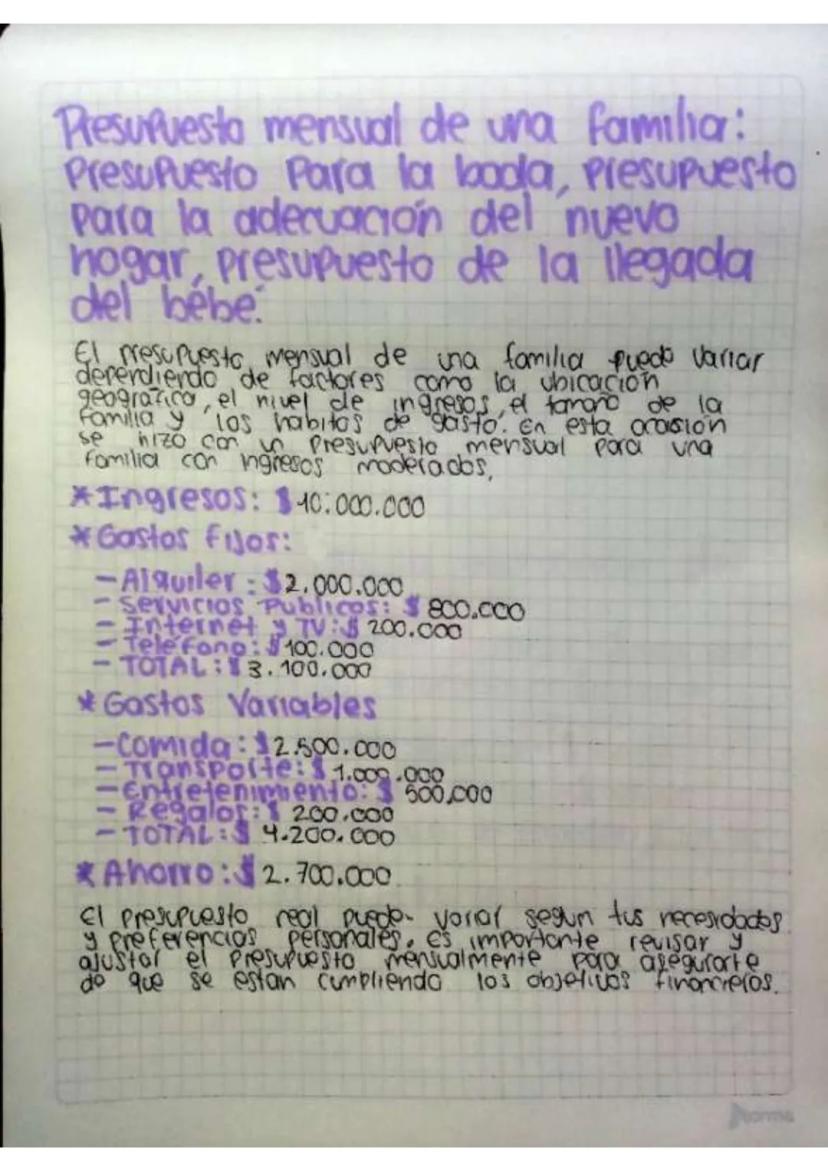 Presupuesto mensual de una familia:
Presupuesto Para la boda, presupuesto
para la adecuación del nuevo
hogar, presupuesto de la llegada
del bébé.
El presupuesto mensual de una familia puede variar
dependiendo de factores como la ubicación
geografica, el nivel de ingresos, el tamaño de la
familia y los habitos de gasto. En esta ocasión
se hizo con un presupuesto mensual para una
familia con ingresos moderados.
*Ingresos: $10.000.000
*Gastos fijos:
- Alquiler: $2.000.000
- Servicios Publicos: $ 800.000
- Internet y TV: $ 200.000
- Teléfono: $100.000
- TOTAL: $3.100.000
*Gastos Variables
- Comida: $2.500.000
- Transporte: $ 1.000.000
- Entretenimiento: $ 500,000
- Regalos: $ 200.000
- TOTAL: $ 4.200.000
*Ahorro: $ 2.700.000
El presupuesto real puede variar segun tus necesidades
y preferencias personales, es importante revisar y
ajustar el presupuesto mensualmente para asegurarte
de que se estan cumpliendo los objetivos financieros.
norma